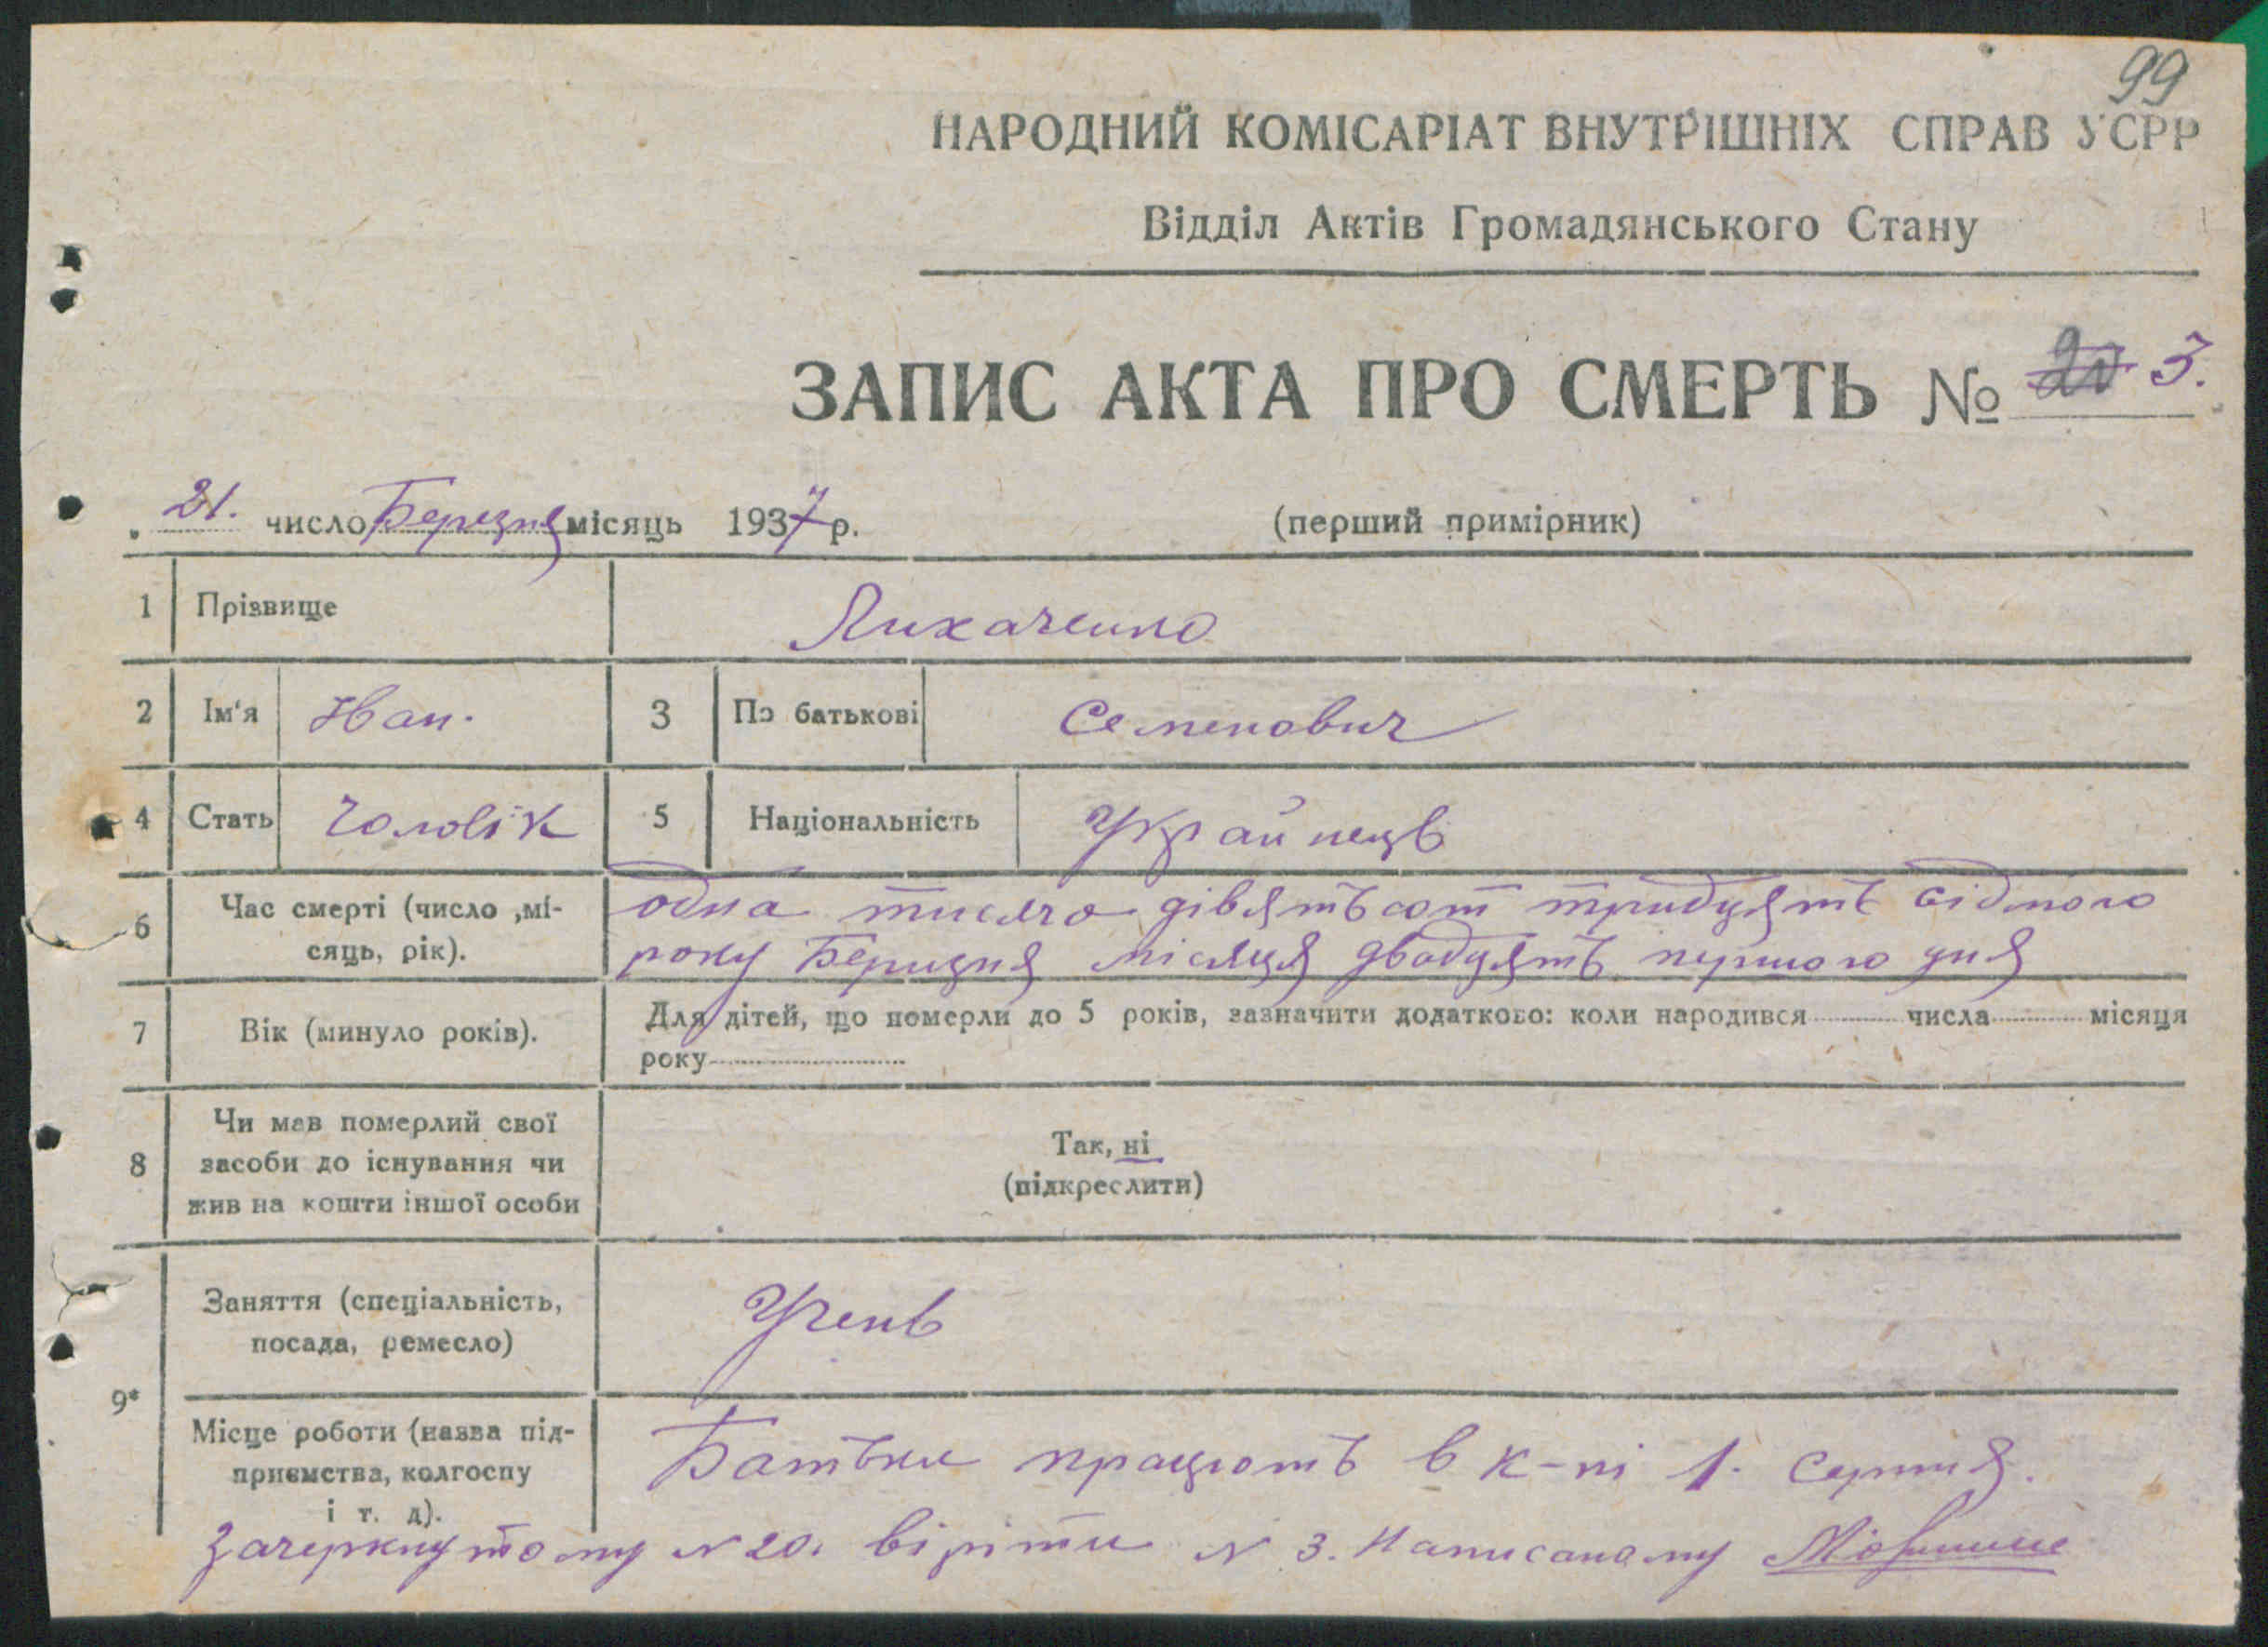 99
НАРОДНИЙ КОМІСАРІАТ ВНУТРІШНІХ СПРАВ УСРР
Відділ Актів Громадянського Стану
ЗАПИС АКТА ПРО СМЕРТЬ № 20 3.
21. число Березня місяць 1937 р. (перший примірник)
1 Прізвище Лихаченко
2 Ім'я Іван. 3 По батькові Семенович
4 Стать Чоловік 5 Національність Украйнець
6 Час смерті (число ,мі-
сяць, рік).
одна тисяча дівятьсот тридцять сідмого
року Березня місяця двадцять першого дня
7 Вік (минуло років).
Для дітей, що померли до 5 років, зазначити додатково: коли народився числа місяця
року
8 Чи мав померлий свої
засоби до існування чи
жив на кошти іншої особи
Так, ні
(підкреслити)
9*
Заняття (спеціальність,
посада, ремесло)
Учень
Місце роботи (назва під-
приємства, колгоспу
і т. д).
Батьки працюють в к-пі 1. Серпня.
Зачеркнутому № 20. віріти № 3. Написаному